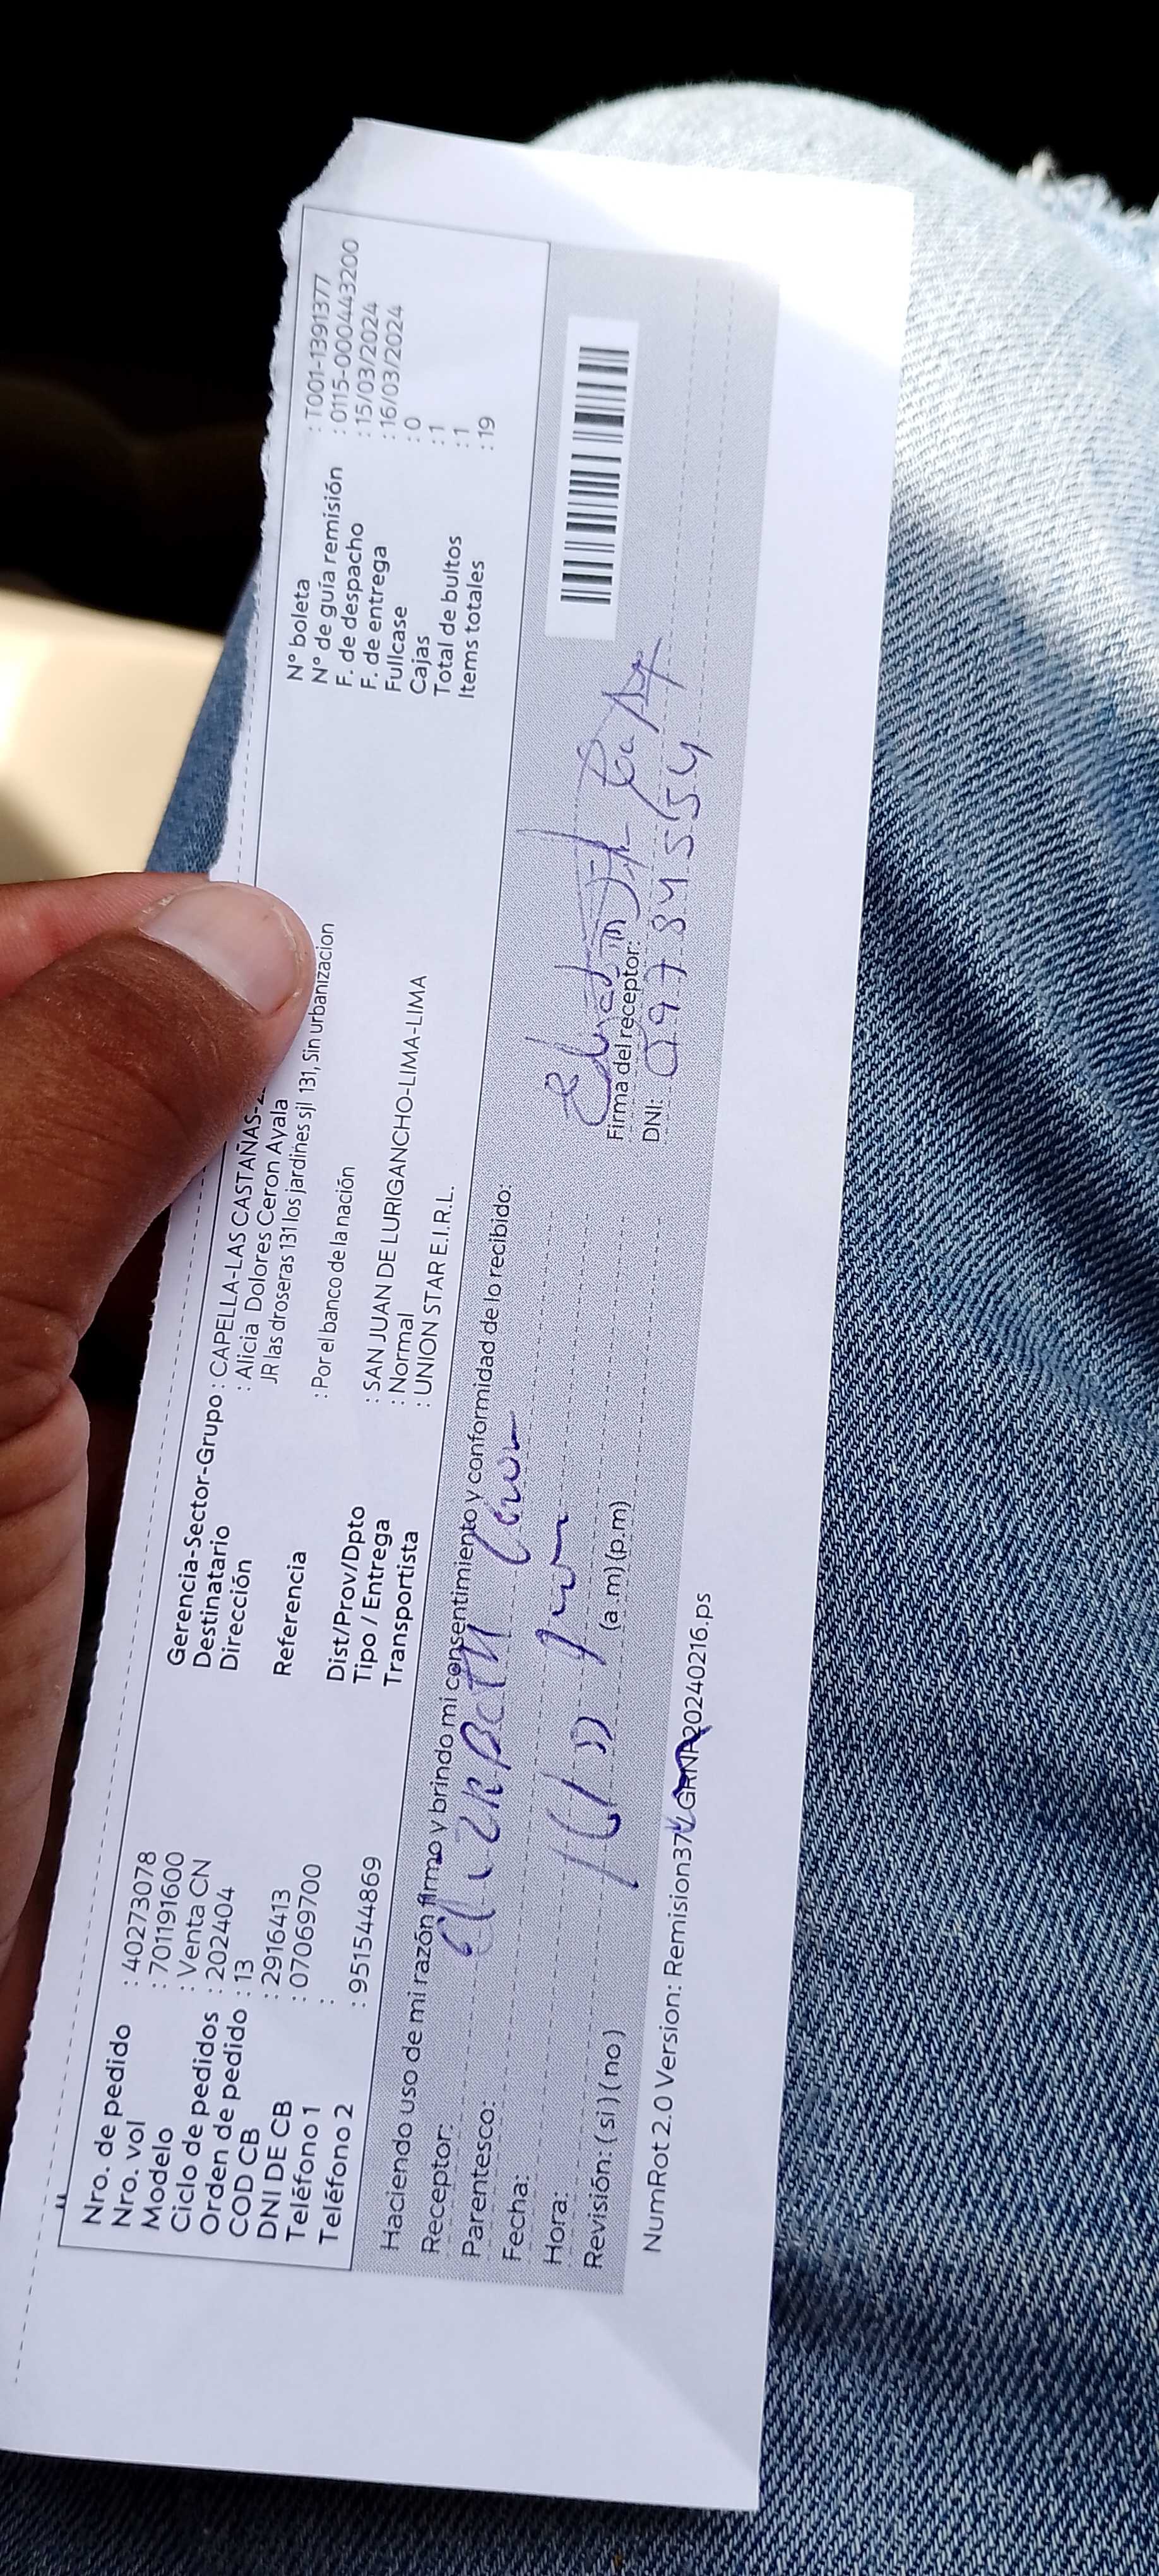 Nro. de pedido : 40273078
Nro. vol : 701191600
Modelo : Venta CN
Ciclo de pedidos : 202404
Orden de pedido : 13
COD CB : 2916413
DNI DE CB : 07069700
Teléfono 1 :
Teléfono 2 : 951544869
Gerencia-Sector-Grupo : CAPELLA-LAS CASTAÑAS-
Destinatario : Alicia Dolores Ceron Ayala
Dirección JR las droseras 131 los jardines sjl 131, Sin urbanizacion
Referencia : Por el banco de la nación
Dist/Prov/Dpto : SAN JUAN DE LURIGANCHO-LIMA-LIMA
Tipo / Entrega : Normal
Transportista : UNION STAR E.I.R.L.
N° boleta : T001-1391377
N° de guía remisión : 0115-0000443200
F. de despacho : 15/03/2024
F. de entrega : 16/03/2024
Fullcase : 0
Cajas : 1
Total de bultos : 1
Items totales : 19
Haciendo uso de mi razón firmo y brindo mi consentimiento y conformidad de lo recibido:
Receptor: Elizabeth Ceron
Parentesco:
Fecha:
Hora: (a.m) (p.m)
Revisión: ( si ) ( no )
Firma del receptor:
DNI: 09784554
NumRot 2.0 Version: Remision37 GRNP20240216.ps